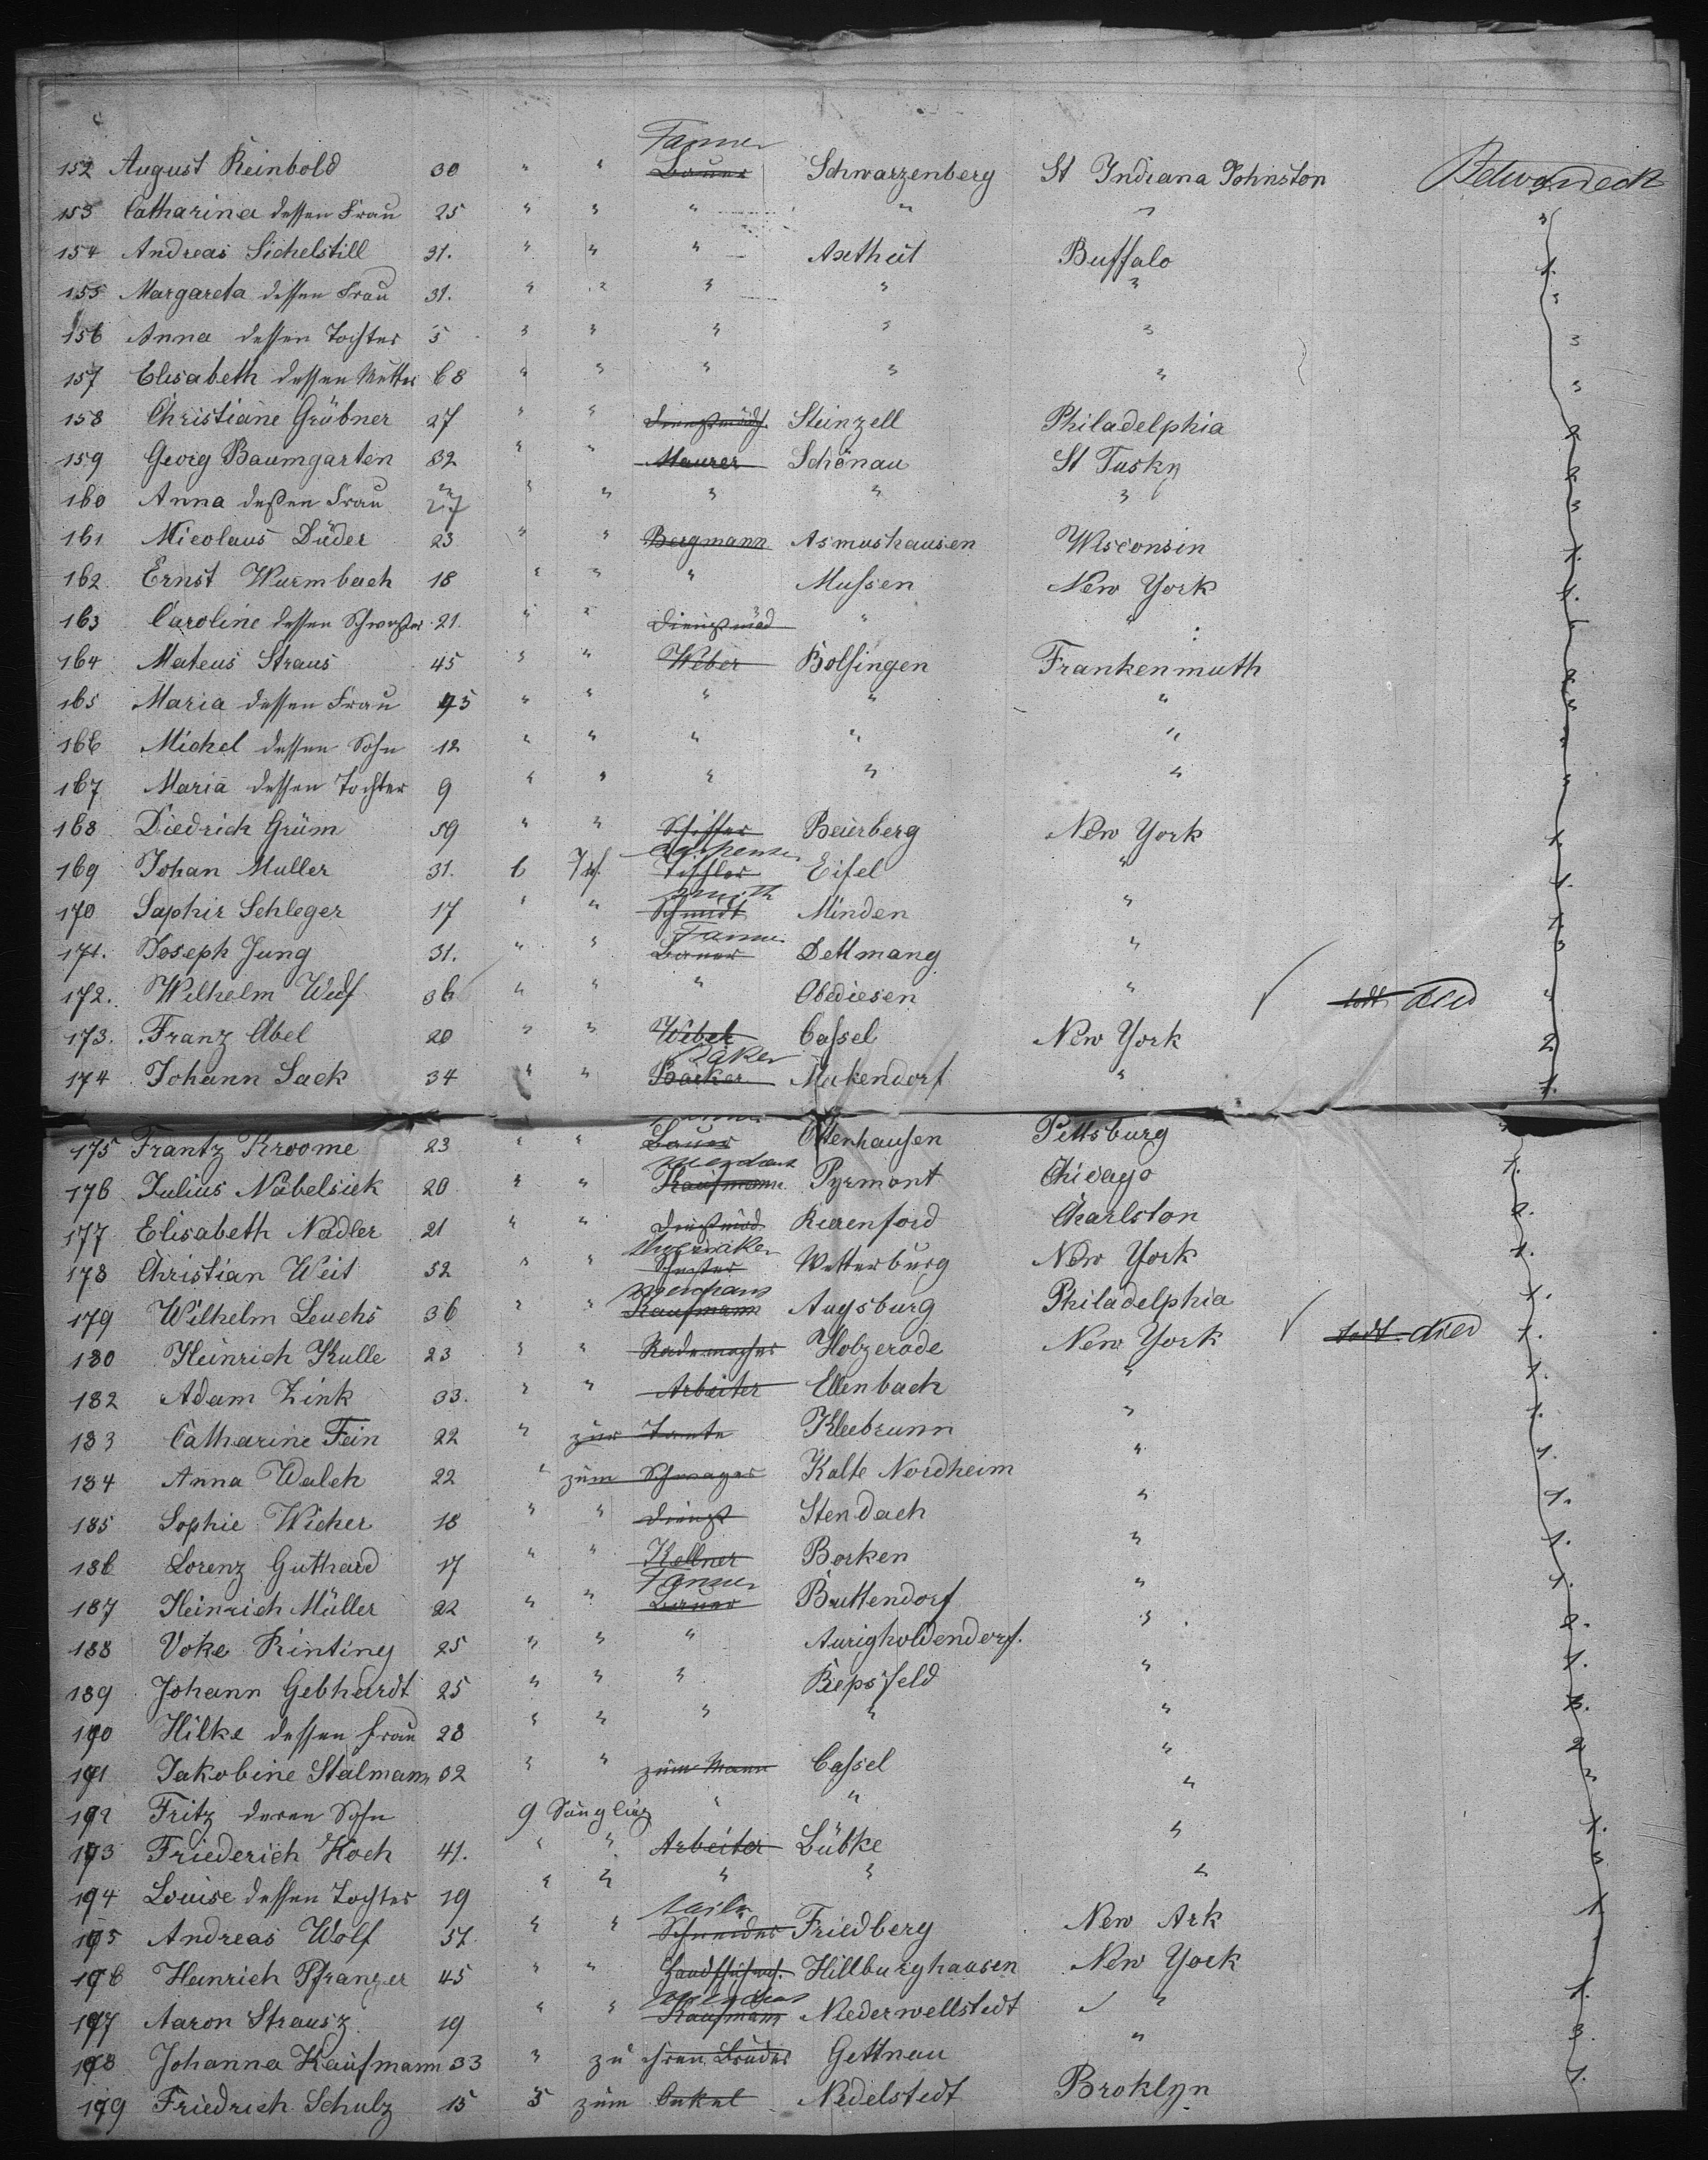 Farmer
152 August Reinbold 30 " " Bauer Schwarzenberg St Indiana Johnston Betwendeck
153 Catharina dessen Frau 25 " " " " "
154 Andreas Sichelstill 31. " " " Axtheit Buffalo 1.
155 Margareta dessen Frau 31. " " " " " "
156 Anna dessen Tochter 5 " " " " " "
157 Elisabeth dessen Mutter 68 " " " " " "
158 Christiane Gröbner 27 " " Dienstmädch. Steinzell Philadelphia 2
159 Georg Baumgarten 32 " " Maurer Schönau St Tusky 2
160 Anna deßen Frau 27 " " " " " "
161 Nicolaus Düder 23 " " Bergmann Asmushausen Wisconsin 1.
162 Ernst Wurmbach 18 " " " Mussen New York 1.
163 Caroline dessen Schwester 21. " " Dienstmäd " "
164 Mateus Straus 45 " " Weber Bolsingen Frankenmuth
165 Maria dessen Frau 45 " " " " " "
166 Michel dessen Sohn 12 " " " " " "
167 Maria dessen Tochter 9 " " " " " "
168 Diedrich Grüm 59 " " Schiffer Beierberg New York 1.
Carpenter
169 Johan Muller 31. 6 Tischler Eifel " 1.
Smith
170 Saphir Schleger 17 " " Schmidt Minden " 1.
Farmer
171. Joseph Jung 31. " " Bauer Dettmang "
172. Wilhelm Wulf 36 " " " Obediesen " todt died "
173. Franz Abel 20 " " Weber Cassel New York 2
Baker
174 Johann Sack 34 " " Bäcker Mukendorf " 1.
Farmer
175 Frantz Kroome 23 " " Bauer Ottenhausen Pittsburg
Merchant
176 Julius Nabelsiek 20 " " Kaufmann Pyrmont Chicago 1.
177 Elisabeth Nadler 21 " " Dienstmäd. Kurenford Charlston 2.
Shoemaker
178 Christian Weit 52 " " Schuster Wetterburg New York 1.
Merchant
179 Wilhelm Leuchs 36 " " Kaufmann Augsburg Philadelphia 1.
180 Heinrich Kulle 23 " " Rademacher Holzerode New York todt died 1.
182 Adam Zink 33. " " Arbeiter Ellenbach " 1.
183 Catharine Fein 22 " zur Tante Kleebrunn " 1.
184 Anna Walch 22 " zum Schwager Kalte Nordheim " 1.
185 Sophie Wicher 18 " " Dienst Stendach " 1.
186 Lorenz Guthard 17 " " Kellner Borken " 1.
Farmer
187 Heinrich Müller 22 " " Bauer Buttendorf " 1.
188 Voke Rinting 25 " " " Aurigholdendorf. " 2.
189 Johann Gebhardt 25 " " " Repsfeld " 1.
190 Hilke dessen Frau 28 " " " " " 3.
191 Jakobine Stalmann 32 " " zum Mann Cassel " 2
192 Fritz deren Sohn 9 Säugling " " " "
193 Friederich Koch 41. " " Arbeiter Lübke " 1.
194 Louise dessen Tochter 19 " " " " " "
Tailor
195 Andreas Wolf 57 " " Schneider Friedberg New Ark 1
196 Heinrich Pfranger 45 " " Handschuhm. Hillburghausen New York
Merchant
197 Aaron Strausz 19 " " Kaufmann Niederwellstedt " 1.
198 Johanna Kaufmann 33 " zu ihren Bruder Gettnau " 3.
199 Friedrich Schulz 15 5 zum Onkel Nedelstedt Broklyn 1.